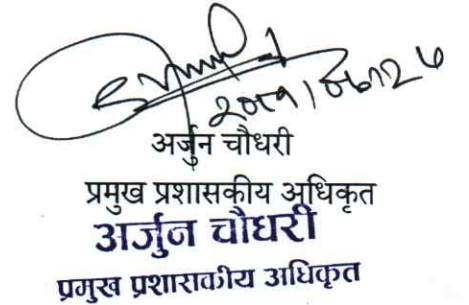 अर्जुन चौधरी
प्रमुख प्रशासकीय अधिकृत
अर्जुन चौधरी
प्रमुख प्रशासकीय अधिकृत